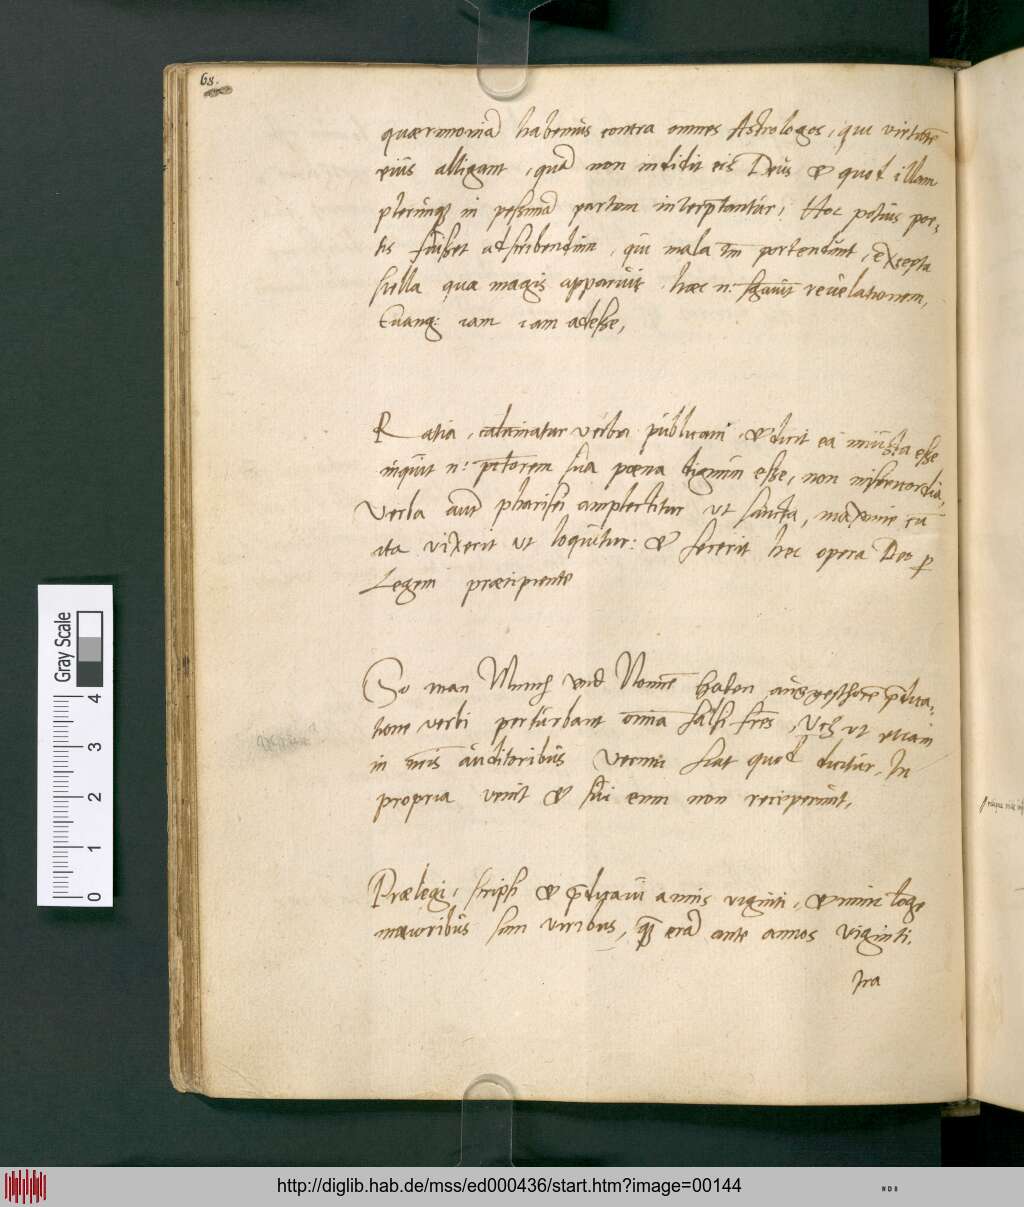 68.
quærimoniā habemus contra omnes Astrologos, qui virtutē
eius alligant, quā non indidit eis Deus & quod illam
plerunq; in pessimā partem interp̄tantur, Hoc potius por-
tis fuisset adscribendum, qui mala tm̄ portendunt, excepta
stella quæ magis apparuit hæc n: revelationem,
Euang: iam iam adesse,
Ratio, verba publicani, & dicit ea iniusta esse
inquit n: p̄ctorem sua pœna dignum esse, non misericordia,
Verba aut pharisei amplectitur ut sancta, maxime cū
ita vixerit ut loquitur: & fecerit hec opera Deo p
Legem præcipiente
So man Munch vnd Nonnē haben p̄dica-
tione verbi perturbant omnia falsi fr̄es, ut etiam
in auditoribus verum fiat quod dicitur, In
propria venit & sui eum non receperunt,
Prælegi, scripsi & p̄dicavi annis viginti, & nunc longe
maioribus sum viribus, quā erā ante annos viginti.
Ira
Gray Scale
0 1 2 3 4
http://diglib.hab.de/mss/ed000436/start.htm?image=00144